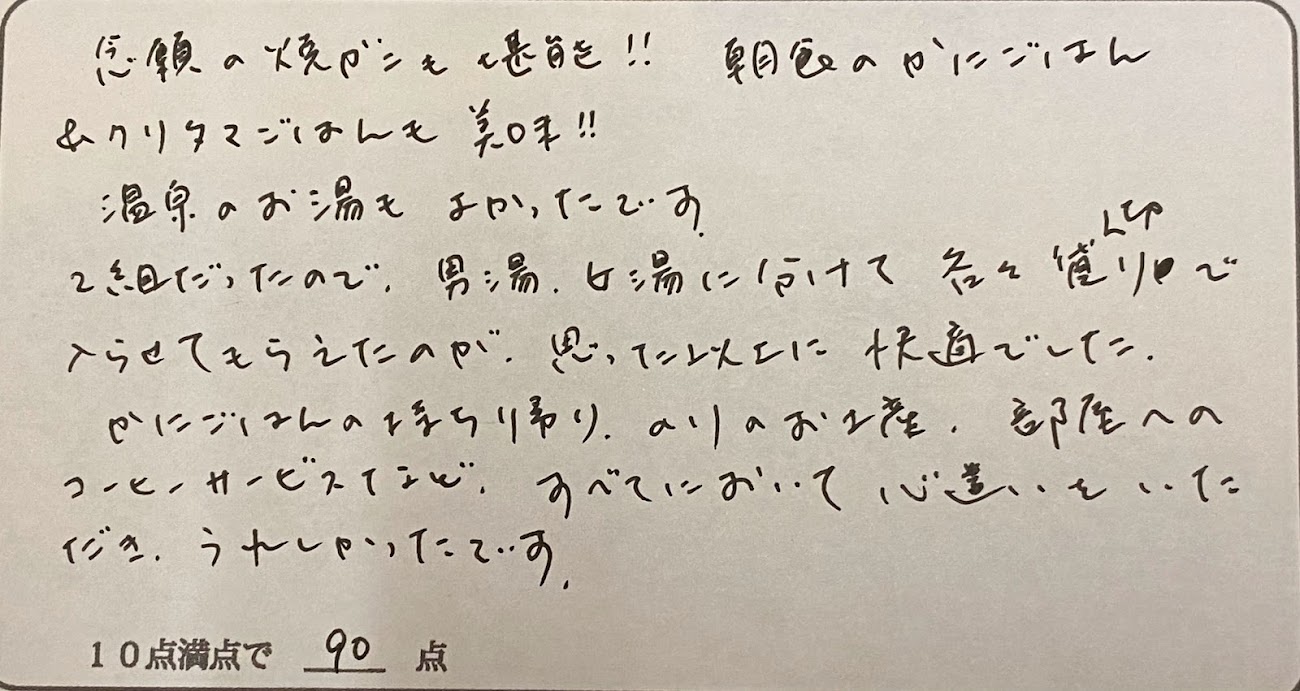 念願の焼ガニも堪能!! 朝食のかにごはん
&クリタマごはんも美味!!
温泉のお湯もよかったです。
2組だったので、男湯、女湯に分けて各々貸切で
入らせてもらえたのが、思った以上に快適でした。
かにごはんの持ち帰り、のりのお土産、部屋への
コーヒーサービスなど、すべてにおいて心遣いをいた
だき、うれしかったです。
10点満点で 90 点